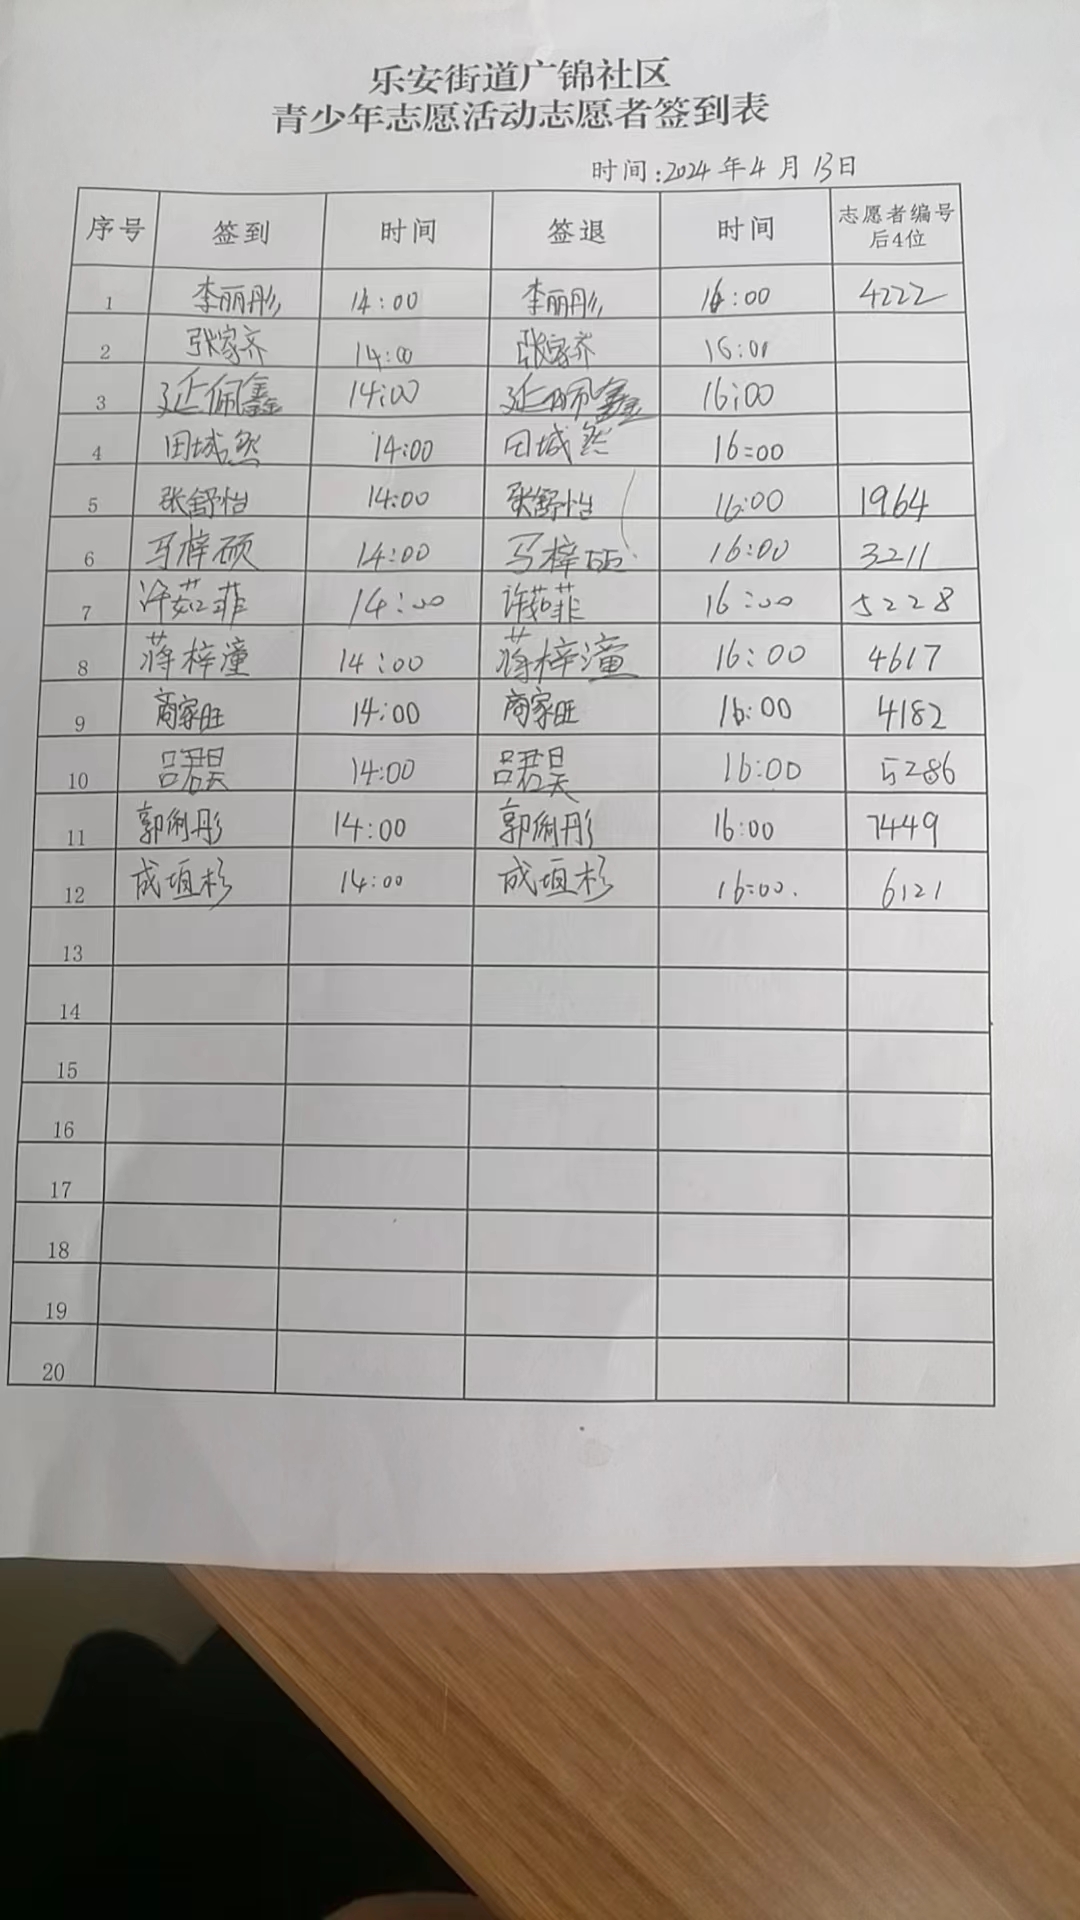 乐安街道广锦社区
青少年志愿活动志愿者签到表
时间:2024年4月13日
序号 签到 时间 签退 时间 志愿者编号后4位
1 李丽彤 14:00 李丽彤 16:00 4222
2 张家齐 14:00 张家齐 16:00
3 延佩鑫 14:00 延佩鑫 16:00
4 田城然 14:00 田城然 16:00
5 张舒怡 14:00 张舒怡 16:00 1964
6 马梓硕 14:00 马梓硕 16:00 3211
7 许茹菲 14:00 许茹菲 16:00 5228
8 蒋梓潼 14:00 蒋梓潼 16:00 4617
9 商家旺 14:00 商家旺 16:00 4182
10 吕君昊 14:00 吕君昊 16:00 5286
11 郭俐彤 14:00 郭俐彤 16:00 7449
12 成垣杉 14:00 成垣杉 16:00. 6121
13
14
15
16
17
18
19
20